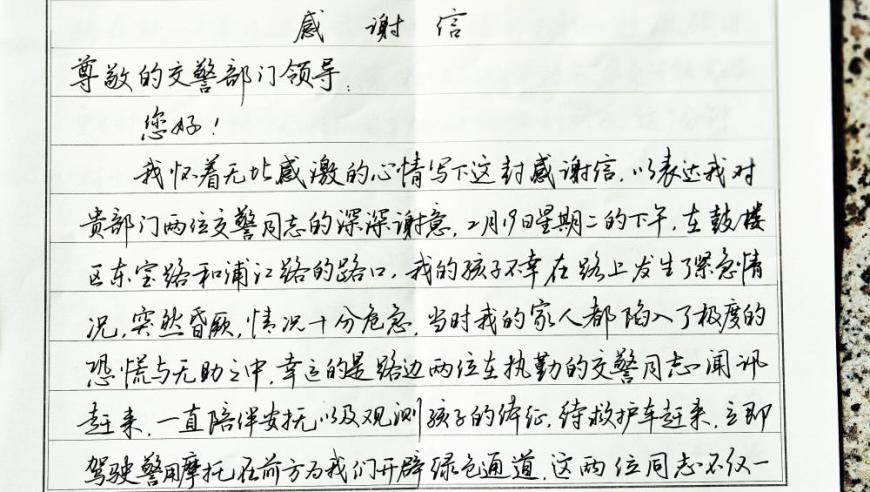 感谢信
尊敬的交警部门领导：
您好！
我怀着无比感激的心情写下这封感谢信，以表达我对
贵部门两位交警同志的深深谢意，2月19日星期二的下午，在鼓楼
区东宝路和浦江路的路口，我的孩子不幸在路上发生了紧急情
况，突然昏厥，情况十分危急，当时我的家人都陷入了极度的
恐慌与无助之中，幸运的是路边两位在执勤的交警同志闻讯
赶来，一直陪伴安抚以及观测孩子的体征，待救护车赶来，立即
驾驶警用摩托在前方为我们开辟绿色通道，这两位同志不仅一